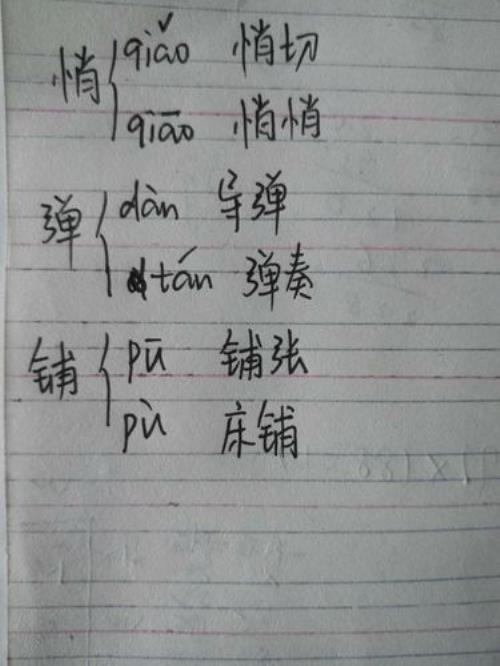 悄 qiǎo 悄切
qiāo 悄悄
弹 dàn 导弹
tán 弹奏
铺 pū 铺张
pù 床铺